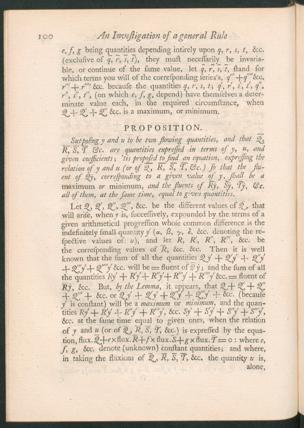 100 An Investigation of a general Rule
e, f, g being quantities depending intirely upon q, r, s, t, &c.
(exclusive of q̇, ṙ, ṡ, ṫ), they must necessarily be invaria-
ble, or continue of the same value, let q̇, ṙ, ṡ, ṫ, stand for
which terms you will of the corresponding series's,
because the quantities q, r, s, t,
(on which e, f, g, depend) have themselves a deter-
minate value each, in the required circumstance, when
&c. is a maximum, or minimum.
PROPOSITION.
Supposing y and u to be two flowing quantities, and that Q,
R, S, T &c. are quantities expressed in terms of y, u, and
given coefficients; 'tis proposed to find an equation, expressing the
relation of y and u (or of Q, R, S, T, &c.) so that the flu-
ent of Qẏ, corresponding to a given value of y, shall be a
maximum or minimum, and the fluents of Rẏ, Sẏ, Tẏ, &c.
all of them, at the same time, equal to given quantities.
Let &c. be the different values of Q, that
will arise, when y is, successively, expounded by the terms of a
given arithmetical progression whose common difference is the
indefinitely small quantity ẏ &c. denoting the re-
spective values of u), and let &c. be
the corresponding values of R, &c. &c. Then it is well
known that the sum of all the quantities
&c. will be = fluent of Qẏ; and the sum of all
the quantities &c. = fluent of
Rẏ, &c. But, by the Lemma, it appears, that
&c. or &c. (because
ẏ is constant) will be a maximum or minimum, and the quan-
tities &c.
&c. at the same time equal to given ones, when the relation
of y and u (or of Q, R, S, T, &c.) is expressed by the equa-
tion, flux. Q + e × flux. R + f × flux. S + g × flux. T = 0: where e,
f, g, &c. denote (unknown) constant quantities; and where,
in taking the fluxions of Q, R, S, T, &c. the quantity u is,
alone,